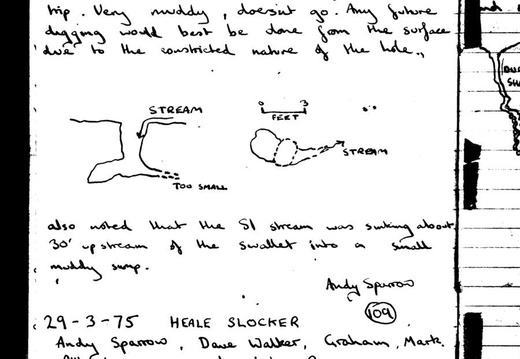 trip. Very muddy, doesn't go. Any future
digging would best be done from the surface
due to the constricted nature of the hole.
STREAM
0 3
FEET
STREAM
TOO SMALL
also noted that the S1 stream was sinking about
30' upstream of the swallet into a small
muddy sump.
Andy Sparrow
109
29-3-75 HEALE SLOCKER
Andy Sparrow, Dave Walker, Graham, Mark.